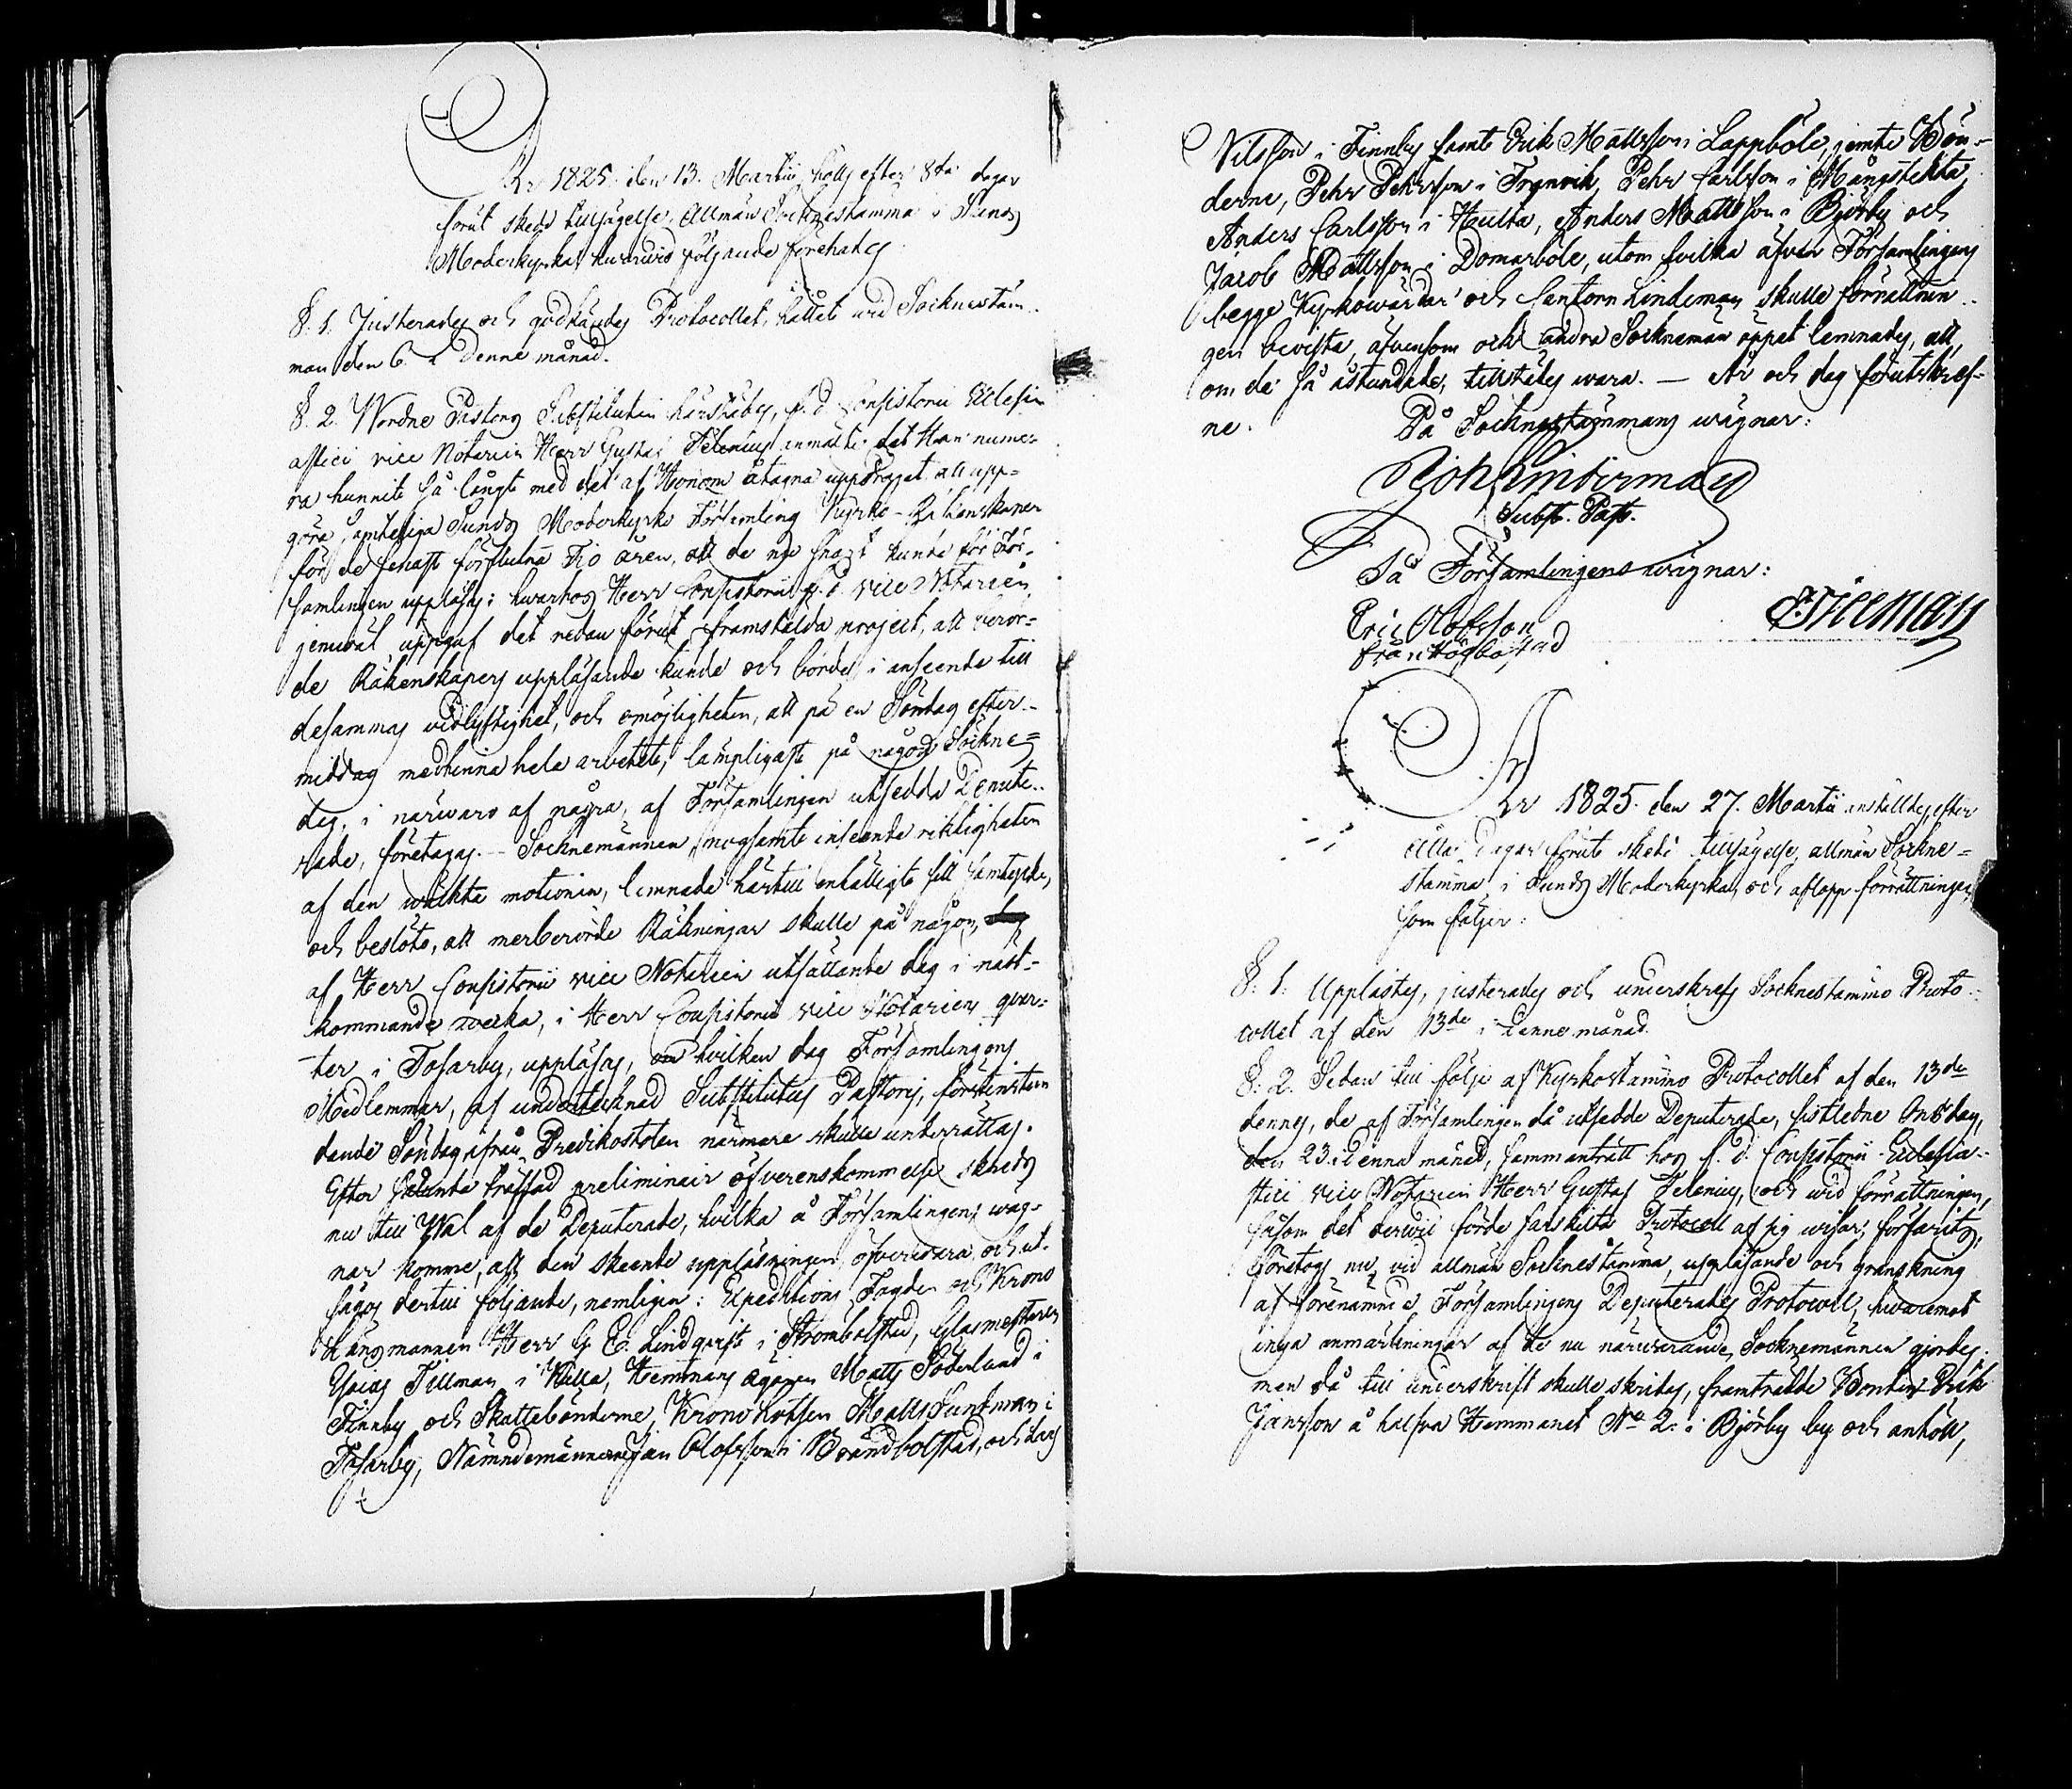 År 1825 den 13. Martii hölls efter 8ta dagar
förut skedd tillsägelse, Allmän Socknestämma i Sunds
Moderkyrka, hvarwid följande förehades
§. 1. Justerades och godkändes Protocollet, hållet wid Socknestäm-
man den 6. i denne månad.
§. 2. Wordne Pastors Substituten härstädes, f. d. Consistorii Ecclesia
astici vice Notarien Herr Gustaf Telenius anmälte det Han nume-
ra hunnit så långt med det af Honom åtagna uppdraget att upp-
göra samteliga Sunds Moderkyrko Församling Kyrko-Räkenskaper
för de senast förflutna Tio åren, att de nu snart kunde för För-
samlingen uppläsas; hwarhos Herr Consistorii f. d. vice Notarien
jemwäl uppgaf det redan förut framstälda project, att berör-
de Räkenskapers uppläsande kunde och borde, i anseende till
desammas vidlyftighet, och omöjligheten, att på en Söndag efter-
middag medhinna hela arbetet, lämpligast på någon Sockne-
dag, i närwaro af några, af Församlingen utsedda Depute-
rade, företagas. - Socknemännen nogsamt inseende riktigheten
af den wäckta motionen, lemnade härtill enhälligt sitt samtycke,
och beslöto, att merberörde Räkningar skulle på någon,
af Herr Consistorii vice Notarien utsättande dag i näst-
kommande wecka, i Herr Consistorii vice Notariens qvar-
ter i Tosarby, uppläsas, om hvilken dag Församlingens
Medlemmar, af undertecknad Substitutus Pastoris, förstinstun
dande Söndag ifrån Predikostolen närmare skulle underrättas.
Efter sålunda träffad preliminair öfverenskommelse skreds
nu till Wal af de Deputerade, hvilka å Församlingens wäg-
nar komme, att den skeende uppläsningen öfwerwara och ut-
sågos dertill följande, nemligen: Expeditions Fogden och Krono
Länsmannen Herr G. E. Lindqvist i Strömbolstad, Glasmästaren
Esaias Tillman i Källa, Hemmans ägaren Matts Söderlund i
Finnby och Skattebönderne, Krono Lotsen Matts Sundman i
Tosarby, Nämndemännerne Jan Olofsson i Brändbolstad, och Lars
Nilsson i Finnby samt Erik Mattsson i Lappböle, jemte Bön-
derne, Pehr Pehrsson i Tranvik, Pehr Carlsson i Mångstekta,
Anders Carlsson i Hulta, Anders Mattsson i Björby och
Jacob Mattsson i Domarböle, utom hvilka äfven Församlingens
begge Kyrkowärdar och Cantorn Lindeman skulle förrättnin-
gen bevista, äfvensom och andra Socknemän öppet lemnades, att,
om de så åstundade, tillstädes wara. - År och dag förutskref-
ne.
På Socknestämmans wägnar:
Joh Linderman
Subst. Past.
På Församlingens wägnar:
Eric Olofsson
från Högbolstad
År 1825 den 27. Martii anställdes, efter
åtta dagar förut skedd tillsägelse, allmän Sockne-
stämma i Sunds Moderkyrka, och aflopp förrättningen,
som följer:
§. 1. Upplästes, justerades och underskrefs Socknestämmo Proto-
collet af den 13de i denne månad.
§. 2. Sedan till följe af Kyrkostämmo Protocollet af den 13de
dennes, de af Församlingen då utsedde Deputerade, sistledne Onsdag,
den 23. i denna månad, sammanträtt hos f. d. Consistorii Ecclesia-
stici vice Notarien Herr Gustaf Telenius, och wid förrättningen,
såsom det derwid förde särskilta Protocoll af sig wisar, förfarits,
företogs nu, vid allmän Socknestämma, uppläsande och granskning
af förenämnde Församlingens Deputerades Protocoll, hwaremot
inga anmärkningar af de nu närwarande Socknemännen gjordes.
men då till underskrift skulle skridas, framträdde Bonden Erik
Jansson å halfva Hemmanet No 2. i Björby by och anhöll,